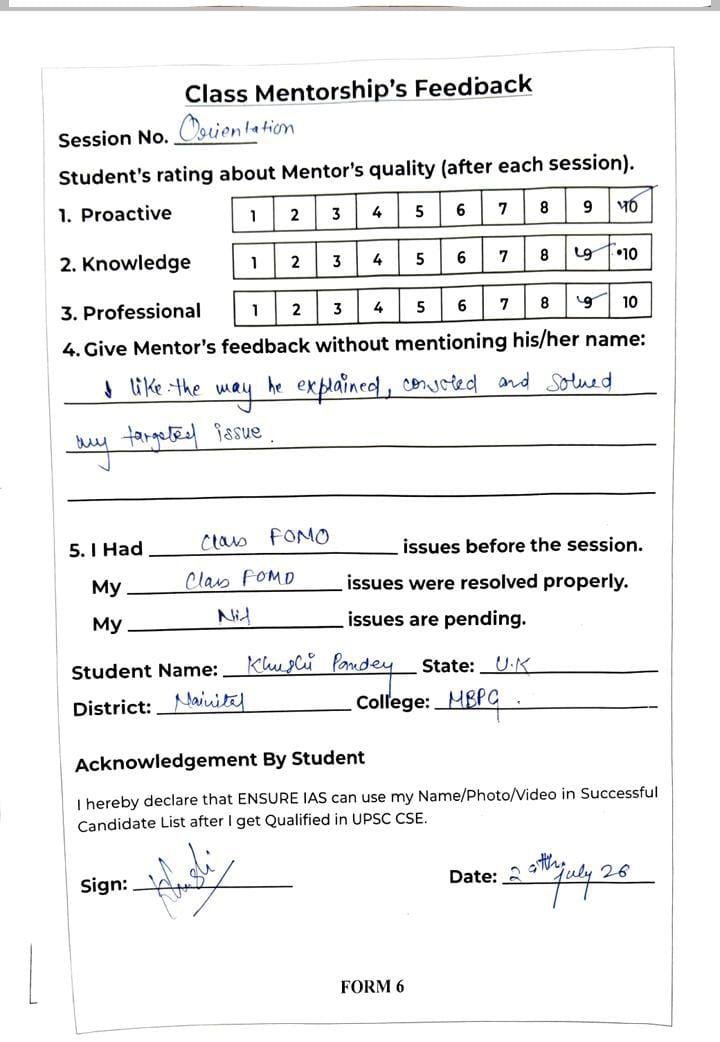 Class Mentorship's Feedback
Session No. Orientation
Student's rating about Mentor's quality (after each session).
1. Proactive 1 2 3 4 5 6 7 8 9 10
2. Knowledge 1 2 3 4 5 6 7 8 9 10
3. Professional 1 2 3 4 5 6 7 8 9 10
4. Give Mentor's feedback without mentioning his/her name:
I like the way he explained, and solved
my targeted issue.
5. I Had Class FOMO issues before the session.
My Class FOMO issues were resolved properly.
My Nil issues are pending.
Student Name: Khushi Pandey State: U.K
District: Nainital College: MBPG.
Acknowledgement By Student
I hereby declare that ENSURE IAS can use my Name/Photo/Video in Successful
Candidate List after I get Qualified in UPSC CSE.
Sign: Khushi Date: July 26
FORM 6